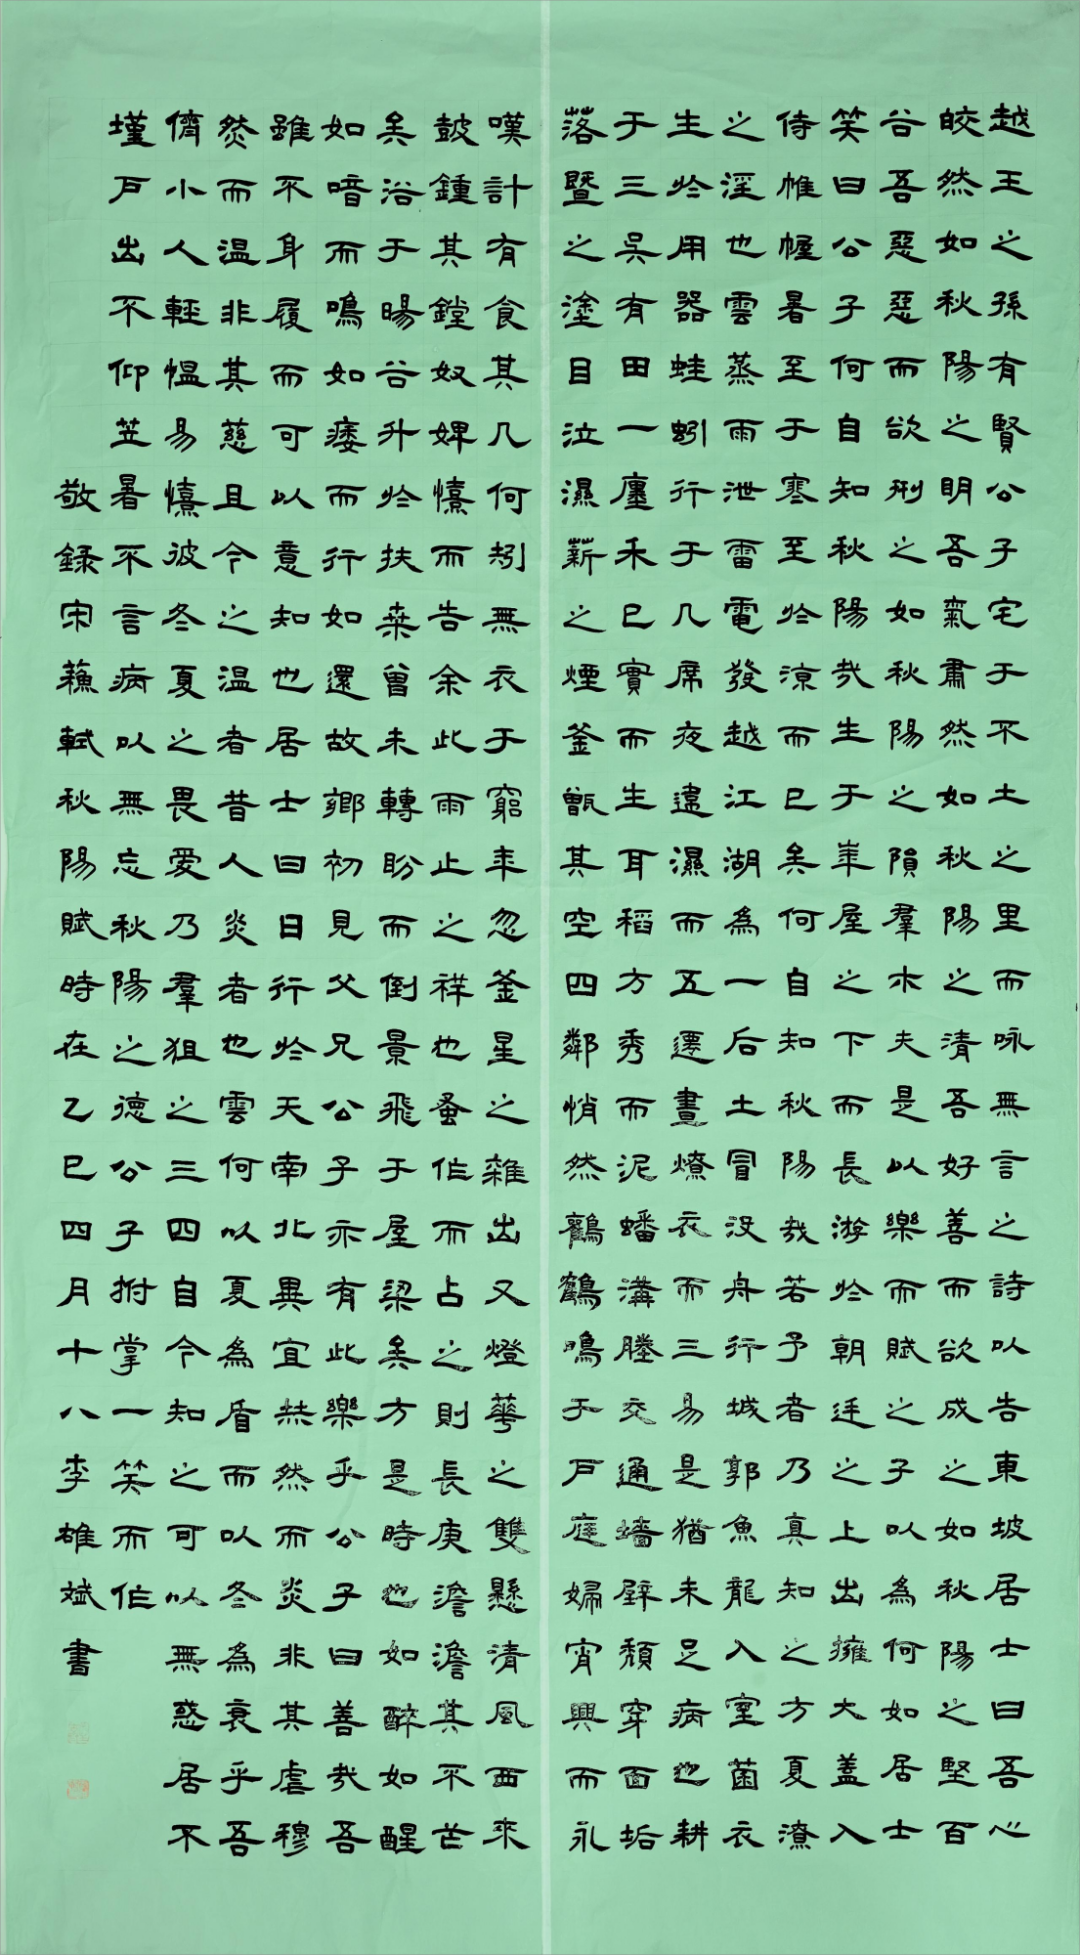 越王之孫有賢公子宅于不土之里而咏無言之詩以告東坡居士曰吾心
皎然如秋陽之明吾氣肅然如秋陽之清吾好善而欲成之如秋陽之堅百
谷吾惡惡而欲刑之如秋陽之隕羣木夫是以樂而賦之子以為何如居士
笑曰公子何自知秋陽哉生于華屋之下而長游於朝廷之上出擁大蓋入
侍帷幄暑至于寒至於涼而已矣何自知秋陽哉若予者乃真知之方夏潦
之淫也雲蒸雨泄雷電發越江湖為一后土冒没舟行城郭魚龍入室菌衣
生於用器蛙蚓行于几席夜違濕而五遷晝燎衣而三易是猶未足病也耕
于三吳有田一廛禾已實而生耳稻方秀而泥蟠溝塍交通墻壁頹穿面垢
落暨之塗目泣濕薪之煙釜甑其空四鄰悄然鸛鶴鳴于户庭婦宵興而永
嘆計有食其几何矧無衣于窮年忽釜星之雜出又燈華之雙懸清風西來
鼓鍾其鏜奴婢憙而告余此雨止之祥也蚤作而占之則長庚澹澹其不芒
矣浴于暘谷升於扶桑曾未轉盼而倒景飛于屋梁矣方是時也如醉如醒
如喑而鳴如痿而行如還故鄉初見父兄公子亦有此樂乎公子曰善哉吾
雖不身履而可以意知也居士曰日行於天南北異宜赫然而炎非其虐穆
然而温非其慈且今之温者昔人炎者也雲何以夏為盾而以冬為衰乎吾
儕小人輕愠易憙彼冬夏之畏愛乃羣狙之三四自今知之可以無惑居不
墐户出不仰笠暑不言病以無忘秋陽之德公子拊掌一笑而作
敬録宋蘇軾秋陽賦時在乙巳四月十八李雄斌書